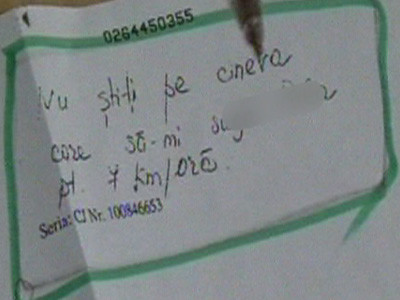 0264450355
Nu știți pe cineva
care să-mi
pt. 7 km/oră.
Seria: CJ Nr. 100846653